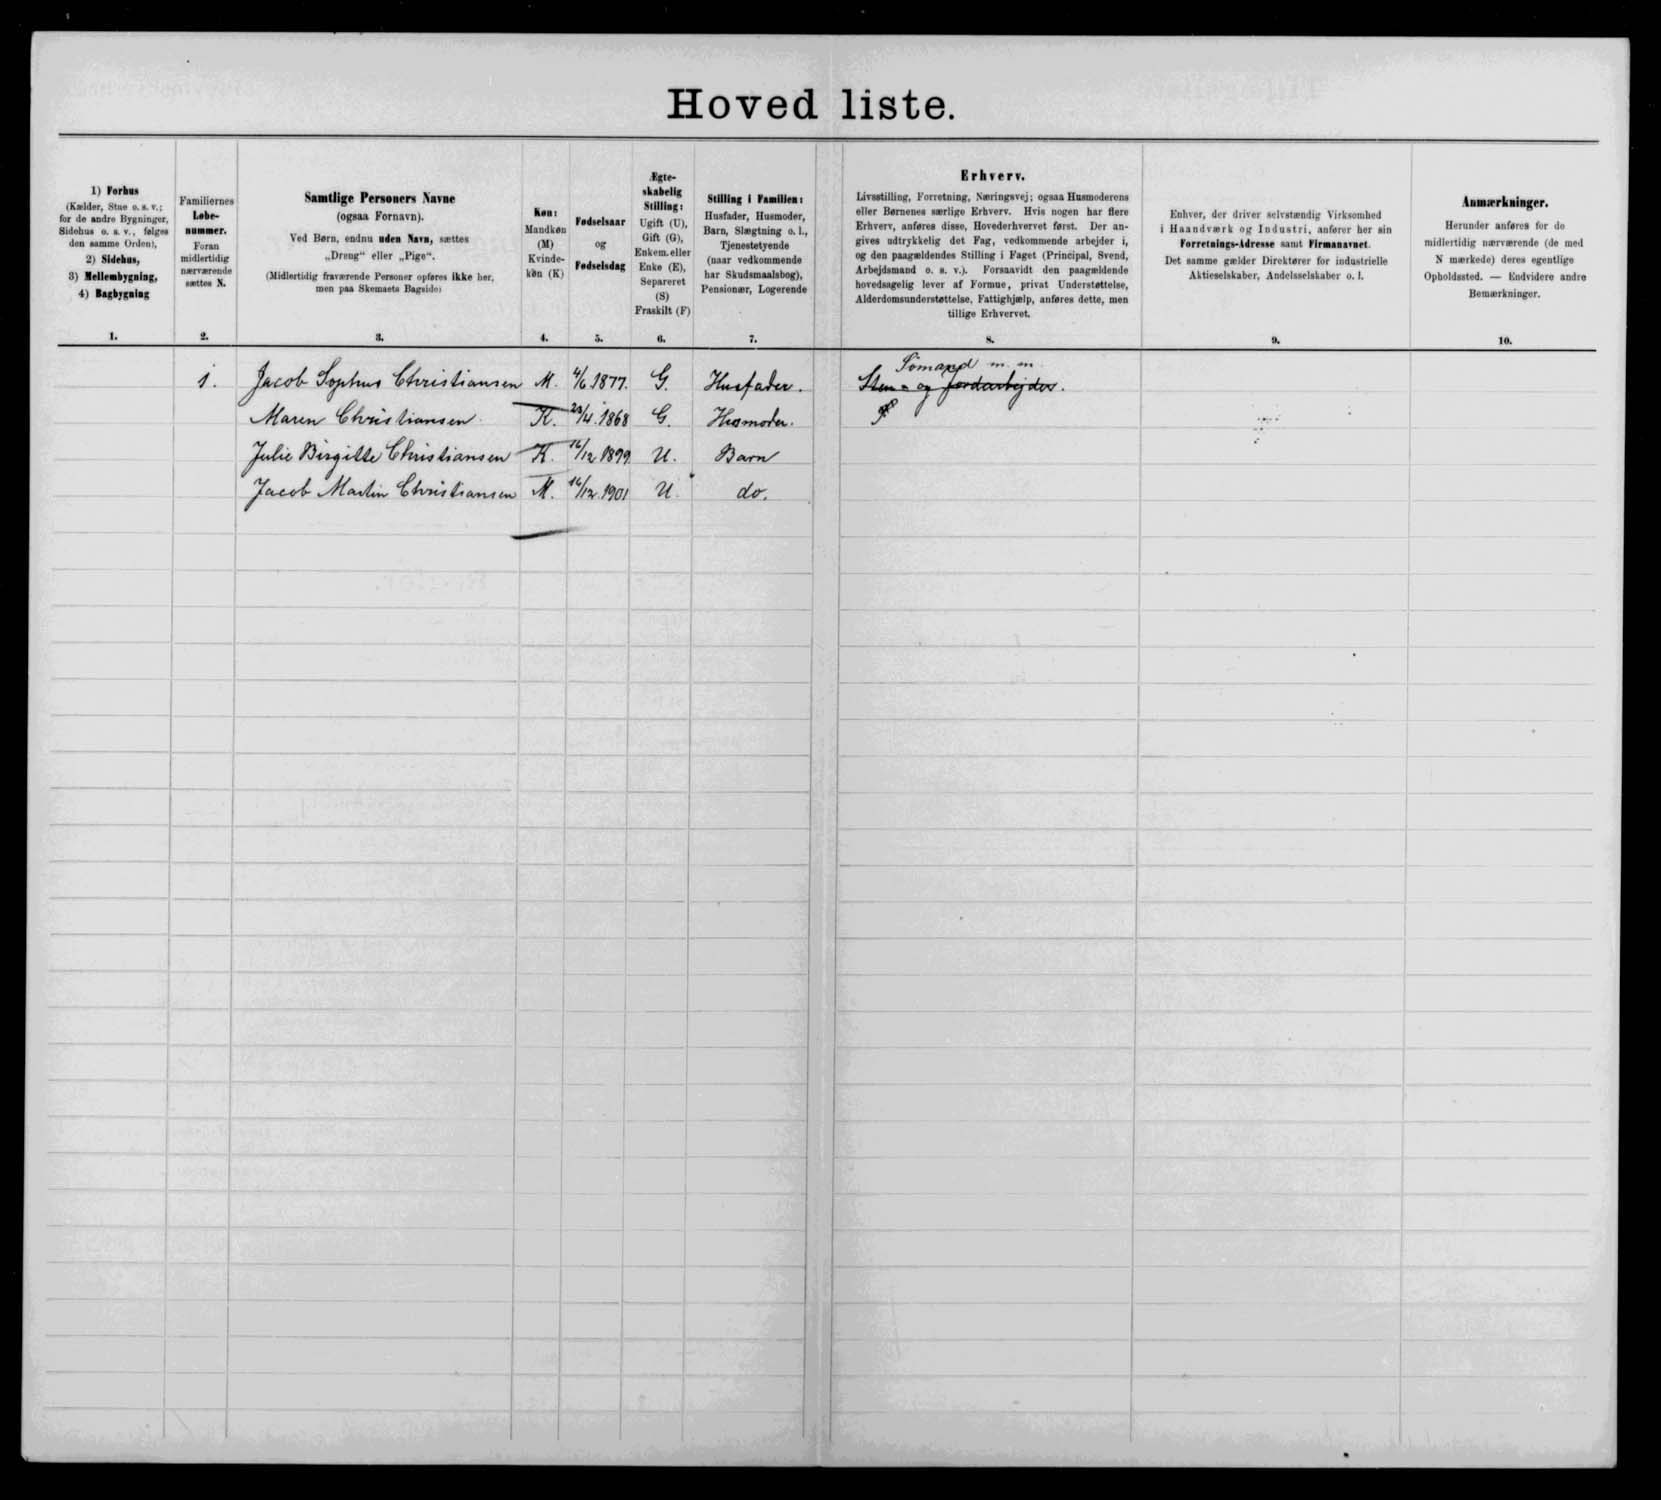 Hoved liste.
1) Forhus
(Kælder, Stue o. s. v.;
for de andre Bygninger,
Sidehus o. s. v., følges
den samme Orden),
2) Sidehus,
3) Mellembygning,
4) Bagbygning
1.
Familiernes
Løbe-
nummer.
Foran
midlertidig
nærværende
sættes N.
2.
Samtlige Personers Navne
(ogsaa Fornavn).
Ved Børn, endnu uden Navn, sættes
„Dreng“ eller „Pige“.
(Midlertidig fraværende Personer opføres ikke her,
men paa Skemaets Bagside)
3.
Køn:
Mandkøn
(M)
Kvinde-
køn (K)
4.
Fødselsaar
og
Fødselsdag
5.
Ægte-
skabelig
Stilling:
Ugift (U),
Gift (G),
Enkem. eller
Enke (E),
Separeret
(S)
Fraskilt (F)
6.
Stilling i Familien:
Husfader, Husmoder,
Barn, Slægtning o. l.,
Tjenestetyende
(naar vedkommende
har Skudsmaalsbog),
Pensionær, Logerende
7.
Erhverv.
Livsstilling, Forretning, Næringsvej; ogsaa Husmoderens
eller Børnenes særlige Erhverv. Hvis nogen har flere
Erhverv, anføres disse, Hovederhvervet først. Der an-
gives udtrykkelig det Fag, vedkommende arbejder i,
og den paagældendes Stilling i Faget (Principal, Svend,
Arbejdsmand o. s. v.). Forsaavidt den paagældende
hovedsagelig lever af Formue, privat Understøttelse,
Alderdomsunderstøttelse, Fattighjælp, anføres dette, men
tillige Erhvervet.
8.
Enhver, der driver selvstændig Virksomhed
i Haandværk og Industri, anfører her sin
Forretnings-Adresse samt Firmanavnet.
Det samme gælder Direktører for industrielle
Aktieselskaber, Andelsselskaber o. l.
9.
Anmærkninger.
Herunder anføres for de
midlertidig nærværende (de med
N mærkede) deres egentlige
Opholdssted. — Endvidere andre
Bemærkninger.
10.
Sømand m. m
1. Jacob Sophus Christiansen M. 4/6 1877. G. Husfader. Sten- og Jordarbejder.
Maren Christiansen K. 23/4 1868 G. Husmoder.
Julie Birgitte Christiansen K. 16/12 1899 U. Barn
Jacob Martin Christiansen M. 16/12 1901 U. do.